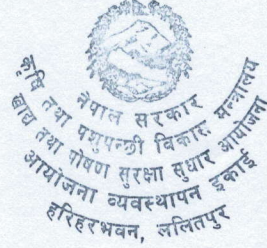 नेपाल सरकार
कृषि तथा पशुपन्छी विकास मन्त्रालय
खाद्य तथा पोषण सुरक्षा सुधार आयोजना
आयोजना व्यवस्थापन इकाई
हरिहरभवन, ललितपुर